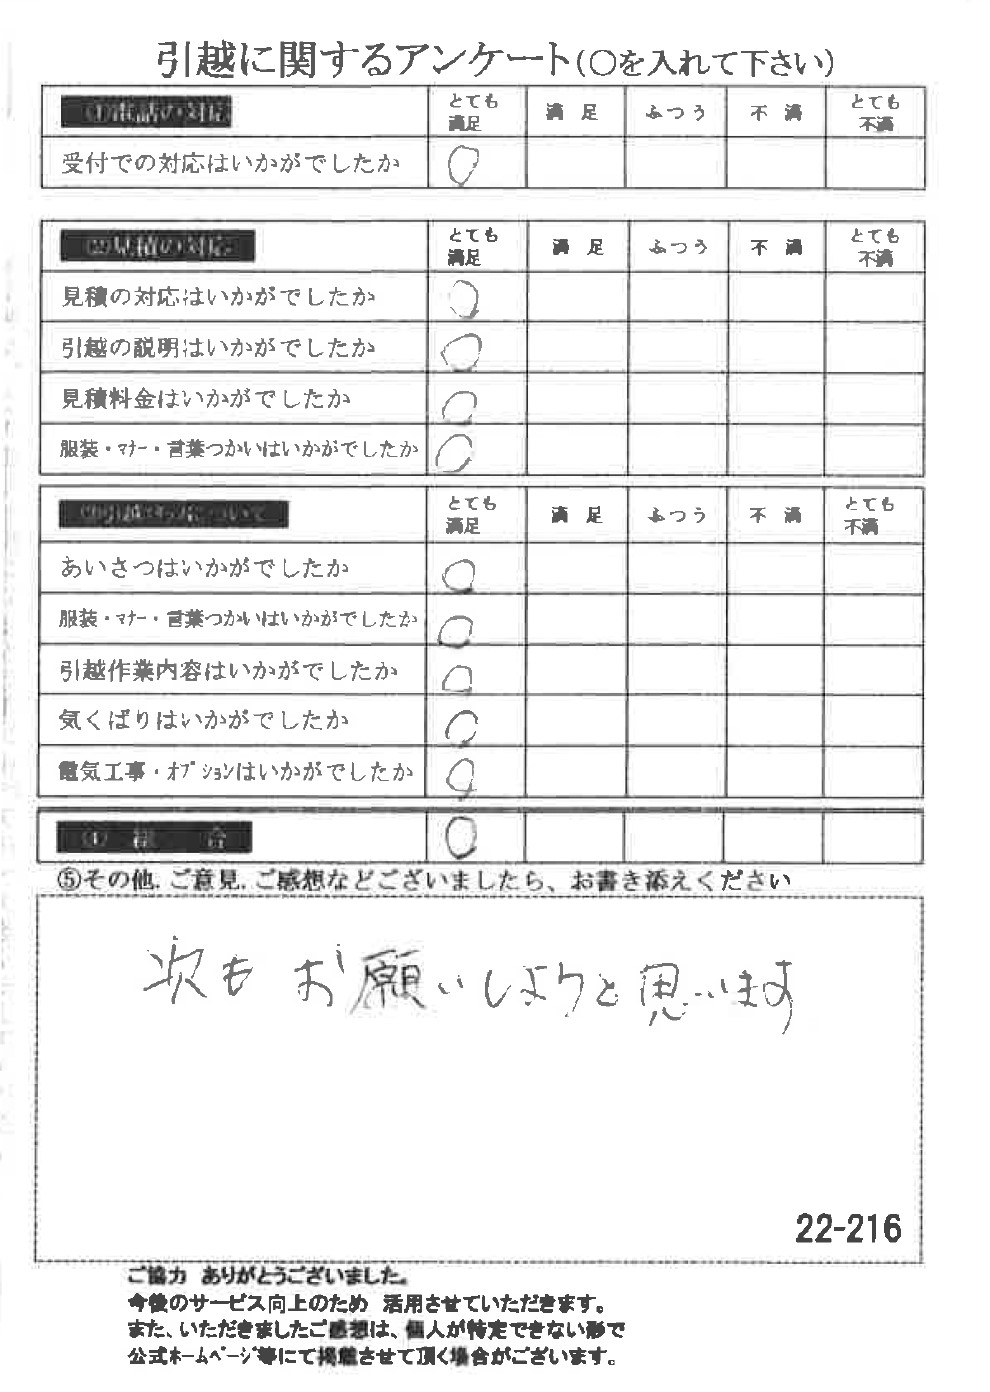 引越に関するアンケート(○を入れて下さい)
①電話の対応 とても満足 満足 ふつう 不満 とても不満
受付での対応はいかがでしたか ○
②見積の対応 とても満足 満足 ふつう 不満 とても不満
見積の対応はいかがでしたか ○
引越の説明はいかがでしたか ○
見積料金はいかがでしたか ○
服装・マナー・言葉つかいはいかがでしたか ○
とても満足 満足 ふつう 不満 とても不満
あいさつはいかがでしたか ○
服装・マナー・言葉つかいはいかがでしたか ○
引越作業内容はいかがでしたか ○
気くばりはいかがでしたか ○
電気工事・オプションはいかがでしたか ○
④ 総 合 ○
⑤その他.ご意見.ご感想などございましたら、お書き添えください
次も お願いしようと思います
22-216
ご協力 ありがとうございました。
今後のサービス向上のため 活用させていただきます。
また、いただきましたご感想は、個人が特定できない形で
公式ホームページ等にて掲載させて頂く場合がございます。